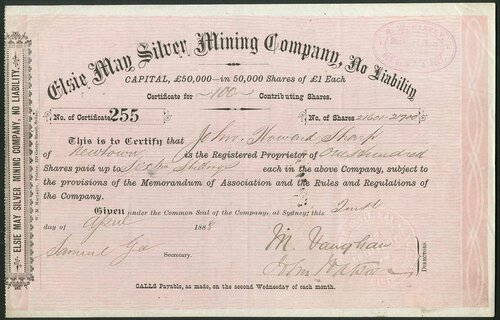 Elsie May Silver Mining Company, No Liability
CAPITAL, £50,000—in 50,000 Shares of £1 Each
Certificate for 100 Contributing Shares.
No. of Certificate 255
No. of Shares 21601-21700
This is to Certify that John Howard Sharp
of Newtown is the Registered Proprietor of One hundred
Shares paid up to Shillings each in the above Company, subject to
the provisions of the Memorandum of Association and the Rules and Regulations of
the Company.
Given under the Common Seal of the Company, at Sydney, this Tenth
day of April 1888
Samuel Secretary.
M. Vaughan
John
DIRECTORS
CALLS Payable, as made, on the second Wednesday of each month.
ELSIE MAY SILVER MINING COMPANY, NO LIABILITY.